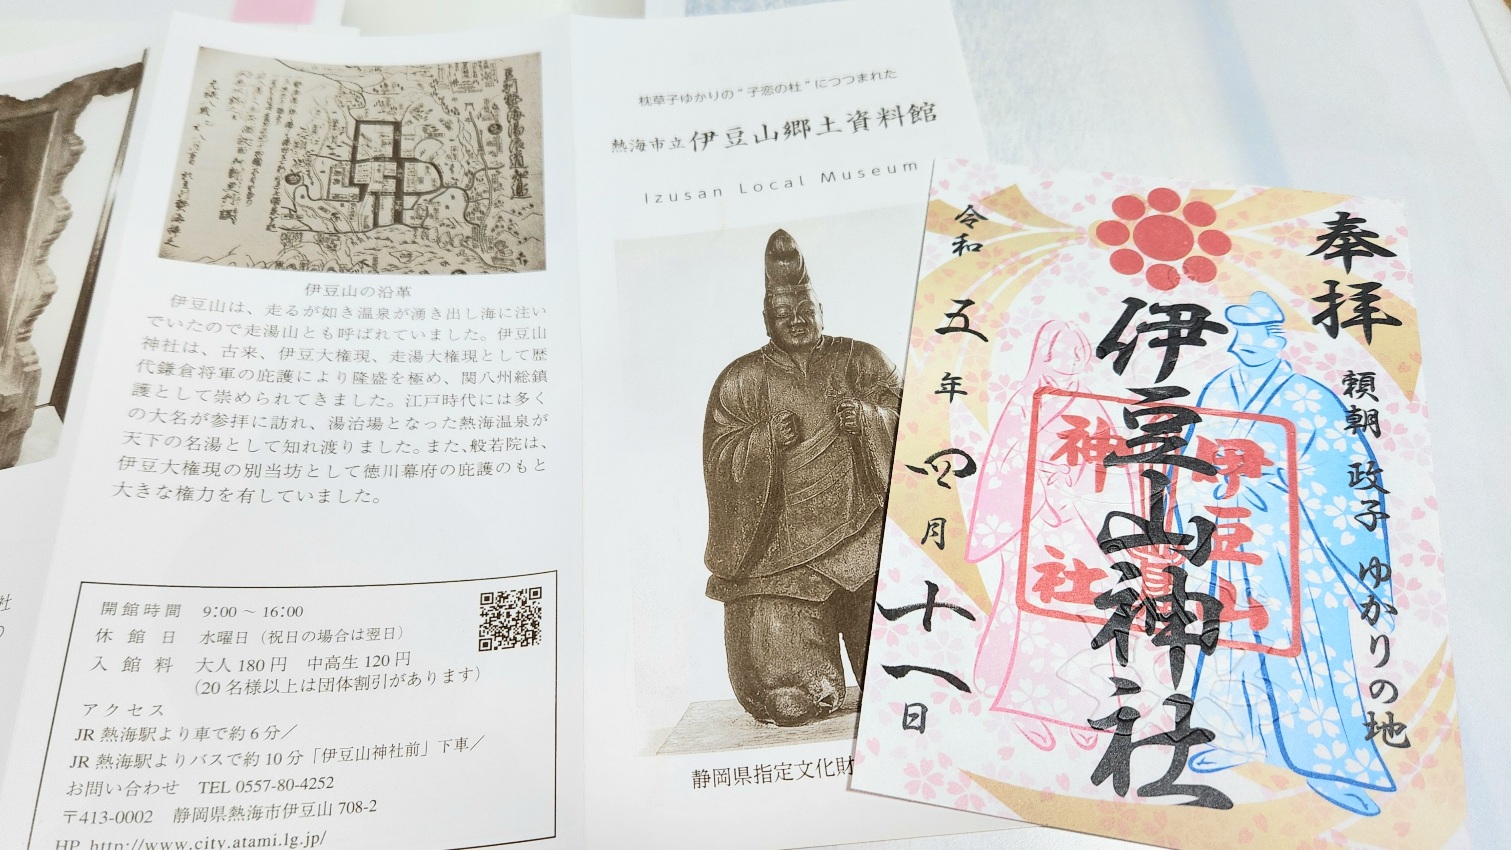 伊豆山の沿革
伊豆山は、走るが如き温泉が湧き出し海に注い
でいたので走湯山とも呼ばれていました。伊豆山
神社は、古来、伊豆大権現、走湯大権現として歴
代鎌倉将軍の庇護により隆盛を極め、関八州総鎮
護として崇められてきました。江戸時代には多く
の大名が参拝に訪れ、湯治場となった熱海温泉が
天下の名湯として知れ渡りました。また、般若院は、
伊豆大権現の別当坊として徳川幕府の庇護のもと
大きな権力を有していました。
開館時間 9:00～16:00
休館日 水曜日（祝日の場合は翌日）
入館料 大人180円 中高生120円
（20名様以上は団体割引があります）
アクセス
JR熱海駅より車で約6分／
JR熱海駅よりバスで約10分「伊豆山神社前」下車／
お問い合わせ TEL 0557-80-4252
〒413-0002 静岡県熱海市伊豆山708-2
HP http://www.city.atami.lg.jp/
枕草子ゆかりの"子恋の杜"につつまれた
熱海市立伊豆山郷土資料館
Izusan Local Museum
静岡県指定文化財
奉拝
頼朝 政子 ゆかりの地
伊豆山神社
伊豆山
神社
令和五年四月十一日